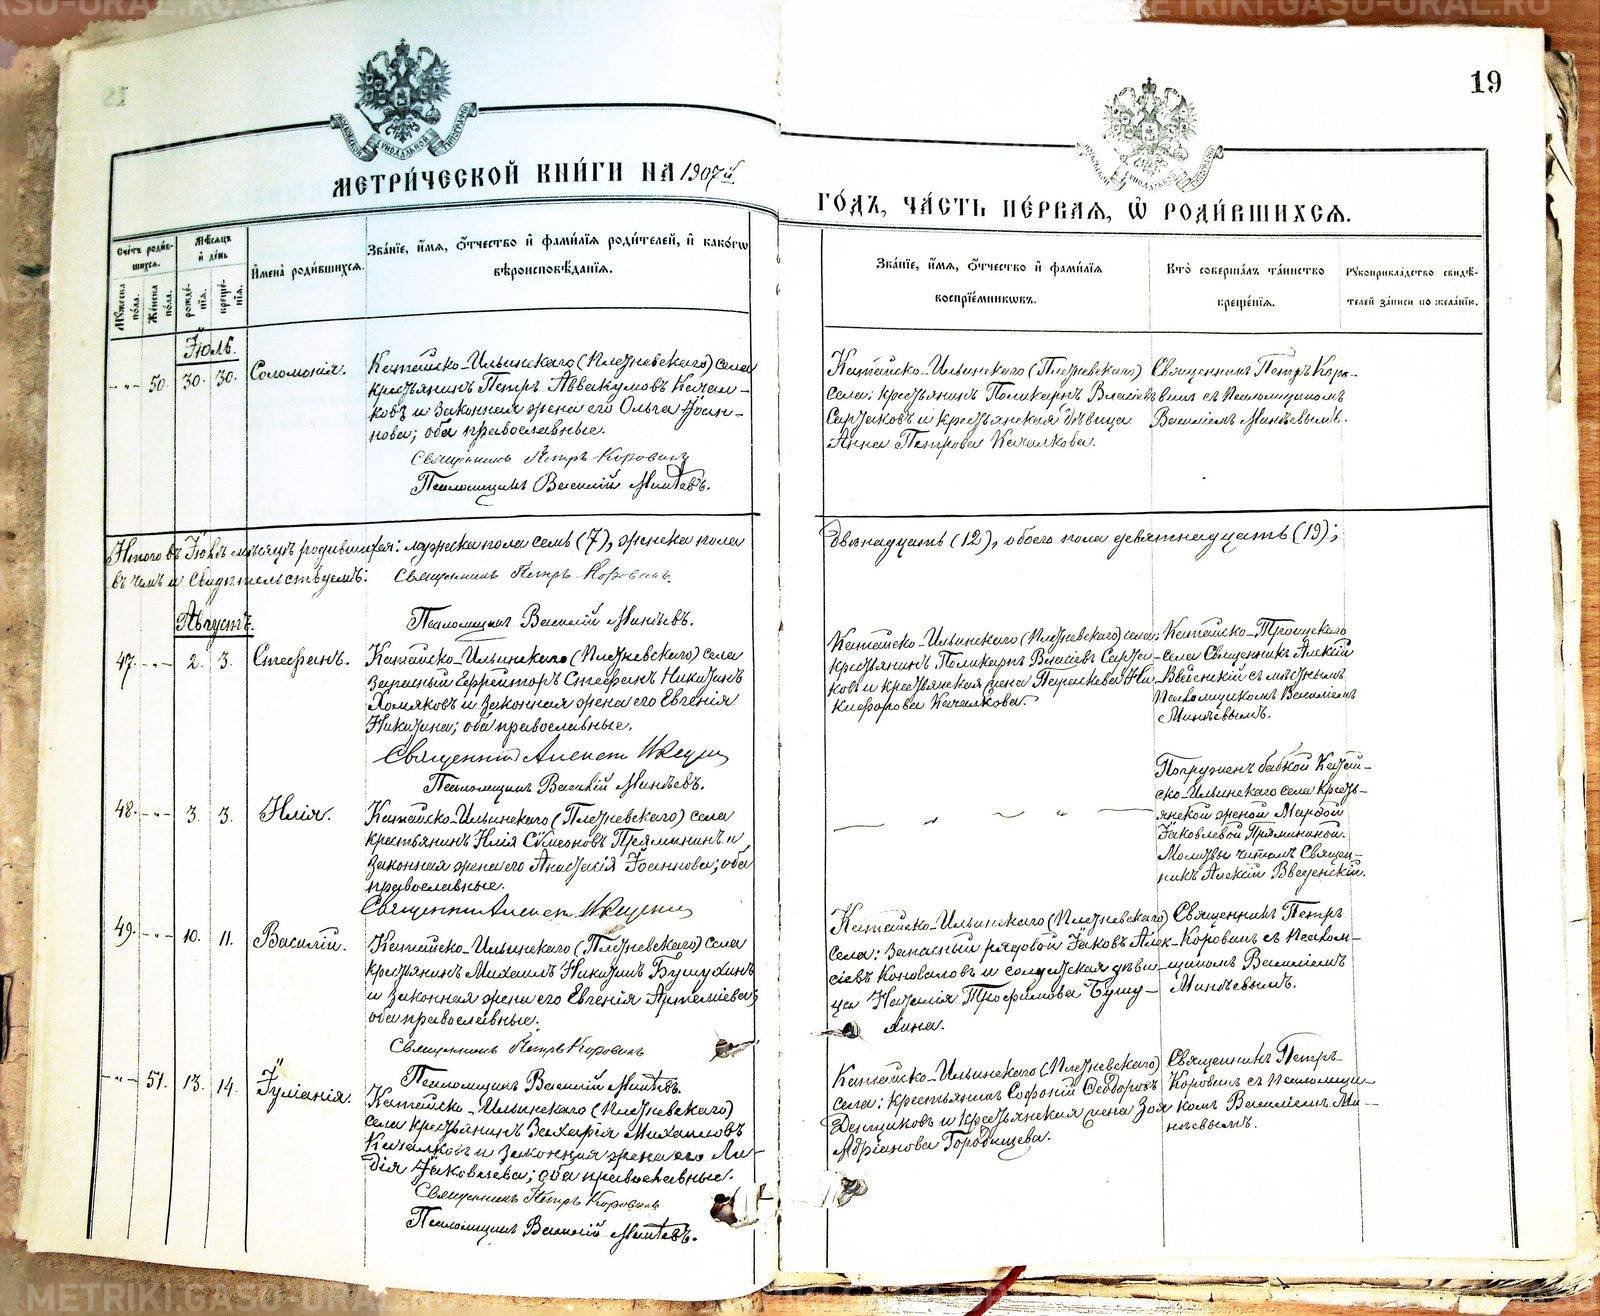 METRIKI.GASU-URAL.RU
19
МОСКОВСКОЙ СѴНОДАЛЬНОЙ ТИПОГРАФІИ
МЕТРИ́ЧЕСКОЙ КНИ́ГИ НА 1907й
ГО́ДЪ, ЧА́СТЬ ПЕ́РВАЯ, Ѡ҆ РОДИ́ВШИХСЯ.
Сче́тъ роди́в-
шихся.
Мꙋ́жеска по́ла.
Же́нска по́ла.
Мѣ́сяцъ и҆ де́нь
рожде́-нїя.
креще́-нїя.
И҆мена̀ роди́вшихся.
Зва́нїе, и҆́мя, ѻ҆́тчество и҆ фами́лїя роди́телей, и҆ како́гѡ
вѣроисповѣ́данїя.
Зва́нїе, и҆́мя, ѻ҆́тчество и҆ фами́лїя
воспрїе́мникѡвъ.
Кто̀ соверша́лъ та́инство
креще́нїя.
Рꙋкоприкла́дство свидѣ́-
телей за́писи по жела́нїю.
Іюль.
-"- 50. 30. 30. Соломонія.
Катайско-Ильинскаго (Плотневскаго) села
крестьянинъ Петръ Аввакумовъ Качал-
ковъ и законная жена его Ольга Іоан-
нова; оба православные.
Священникъ Петръ Коровинъ
Псаломщикъ Василій Минѣевъ.
Катайско-Ильинскаго (Плотневскаго)
села: крестьянинъ Поликарпъ Власіевъ
Сартаковъ и крестьянская дѣвица
Анна Петрова Качалкова.
Священникъ Петръ Коро-
винъ съ Псаломщикомъ
Василіемъ Минѣевымъ.
Итого въ Іюлѣ мѣсяцѣ родившихся: мужска пола семь (7), женска пола
двѣнадцать (12), обоего пола девятнадцать (19);
въ чемъ и свидѣтельствуемъ: Священникъ Петръ Коровинъ.
Псаломщикъ Василій Минѣевъ.
Августъ.
47. -"- 2. 3. Стефанъ.
Катайско-Ильинскаго (Плотневскаго) села
Запасный Ефрейторъ Стефанъ Никитинъ
Хомяковъ и законная жена его Евгенія
Никитина; оба православные.
Священникъ
Псаломщикъ Василій Минѣевъ.
Катайско-Ильинскаго (Плотневскаго) села:
крестьянинъ Поликарпъ Власіевъ Сарта-
ковъ и крестьянская жена Параскева Ни-
кифорова Качалкова.
Катайско-Троицкаго
села Священникъ Алексій
Введенскій съ мѣстнымъ
Псаломщикомъ Василіемъ
Минѣевымъ.
48. -"- 3. 3. Илія.
Катайско-Ильинскаго (Плотневскаго) села
крестьянинъ Илія Сѵмеоновъ Пряминъ и
законная жена его Анастасія Іоаннова; оба
православные.
Священникъ
— " — " —
Погруженъ бабкой Катай-
ско-Ильинскаго села кресть-
янской женой Марѳой
Іаковлевой Пряминой.
Молитвы читалъ Священ-
никъ Алексій Введенскій.
49. -"- 10. 11. Василій.
Катайско-Ильинскаго (Плотневскаго) села
крестьянинъ Михаилъ Никитинъ Бушухинъ
и законная жена его Евгенія Артеміева;
оба православные.
Священникъ Петръ Коровинъ
Псаломщикъ Василій Минѣевъ.
Катайско-Ильинскаго (Плотневскаго)
села: Запасный рядовой Іаковъ Алек-
сіевъ Коноваловъ и солдатская дѣви-
ца Наталія Трофимова Бушу-
хина.
Священникъ Петръ
Коровинъ съ Псалом-
щикомъ Василіемъ
Минѣевымъ.
-"- 51. 13. 14. Іуліанія.
Катайско-Ильинскаго (Плотневскаго)
села крестьянинъ Захарія Михаиловъ
Качалковъ и законная жена его Ли-
дія Іаковлева; оба православные.
Священникъ Петръ Коровинъ
Псаломщикъ Василій Минѣевъ.
Катайско-Ильинскаго (Плотневскаго)
села: крестьянинъ Софоній Ѳеодоровъ
Денщиковъ и крестьянская жена Зоя
Адріанова Городищева.
Священникъ Петръ
Коровинъ съ Псаломщи-
комъ Василіемъ Ми-
нѣевымъ.
METRIKI.GASU-URAL.RU